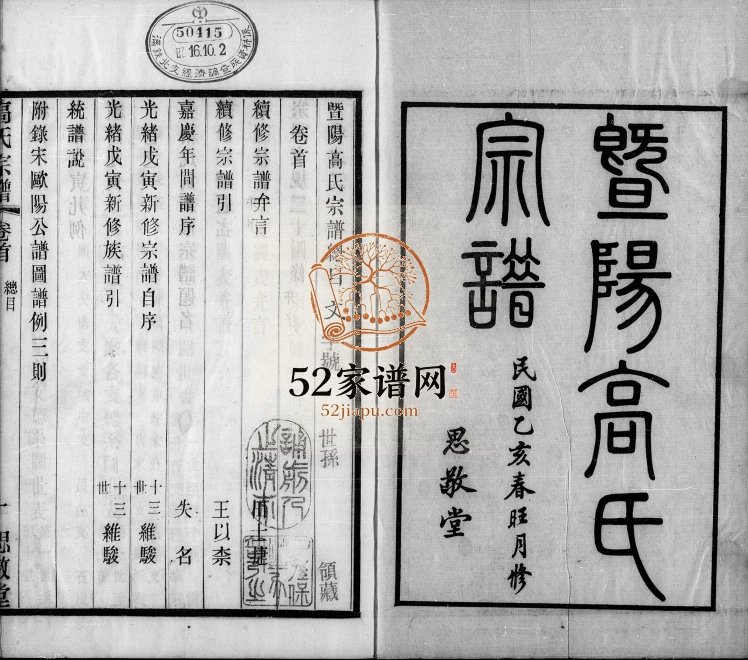 暨陽高氏
宗譜
民國乙亥春旺月修
思敬堂
50415
16.10.2
暨陽高氏宗譜總目 文 字號 世孫 領藏
卷首
續修宗譜弁言
續修宗譜引 王以柰
嘉慶年間譜序 失名
光緒戊寅新修宗譜自序 十三世 維駿
光緒戊寅新修族譜引 十三世 維駿
統譜説
附錄宋歐陽公譜圖譜例三則
高氏宗譜 卷首 總目 一 思敬堂
52家谱网
52jiapu.com